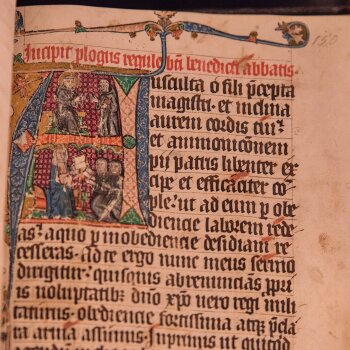 150
Incipit plogus regule bti benedicti abbatis
Ausculta o fili pcepta
magistri · et inclina
aurem cordis tui ·
et ammonicionem
pij patris libenter ex
cipe et efficaciter com
ple · ut ad eum p obe
diencie laborem rede
as · a quo p inobediencie desidiam re
cesseras · Ad te ergo nunc meus sermo
dirigitur · quisquis abrenuncians ppri
is voluptatibus dno xpo vero regi mili
taturus · obediencie fortissima atqz pcla
ra arma assumis · Inprimis ut quicqd